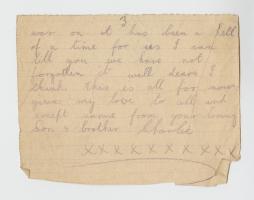 3
war on it has been a hell
of a time for us I can
tell you we have not
forgotten it well dears I
think this is all for now
give my love to all and
except same from your loving
Son & brother Charlie
X X X X X X X X X